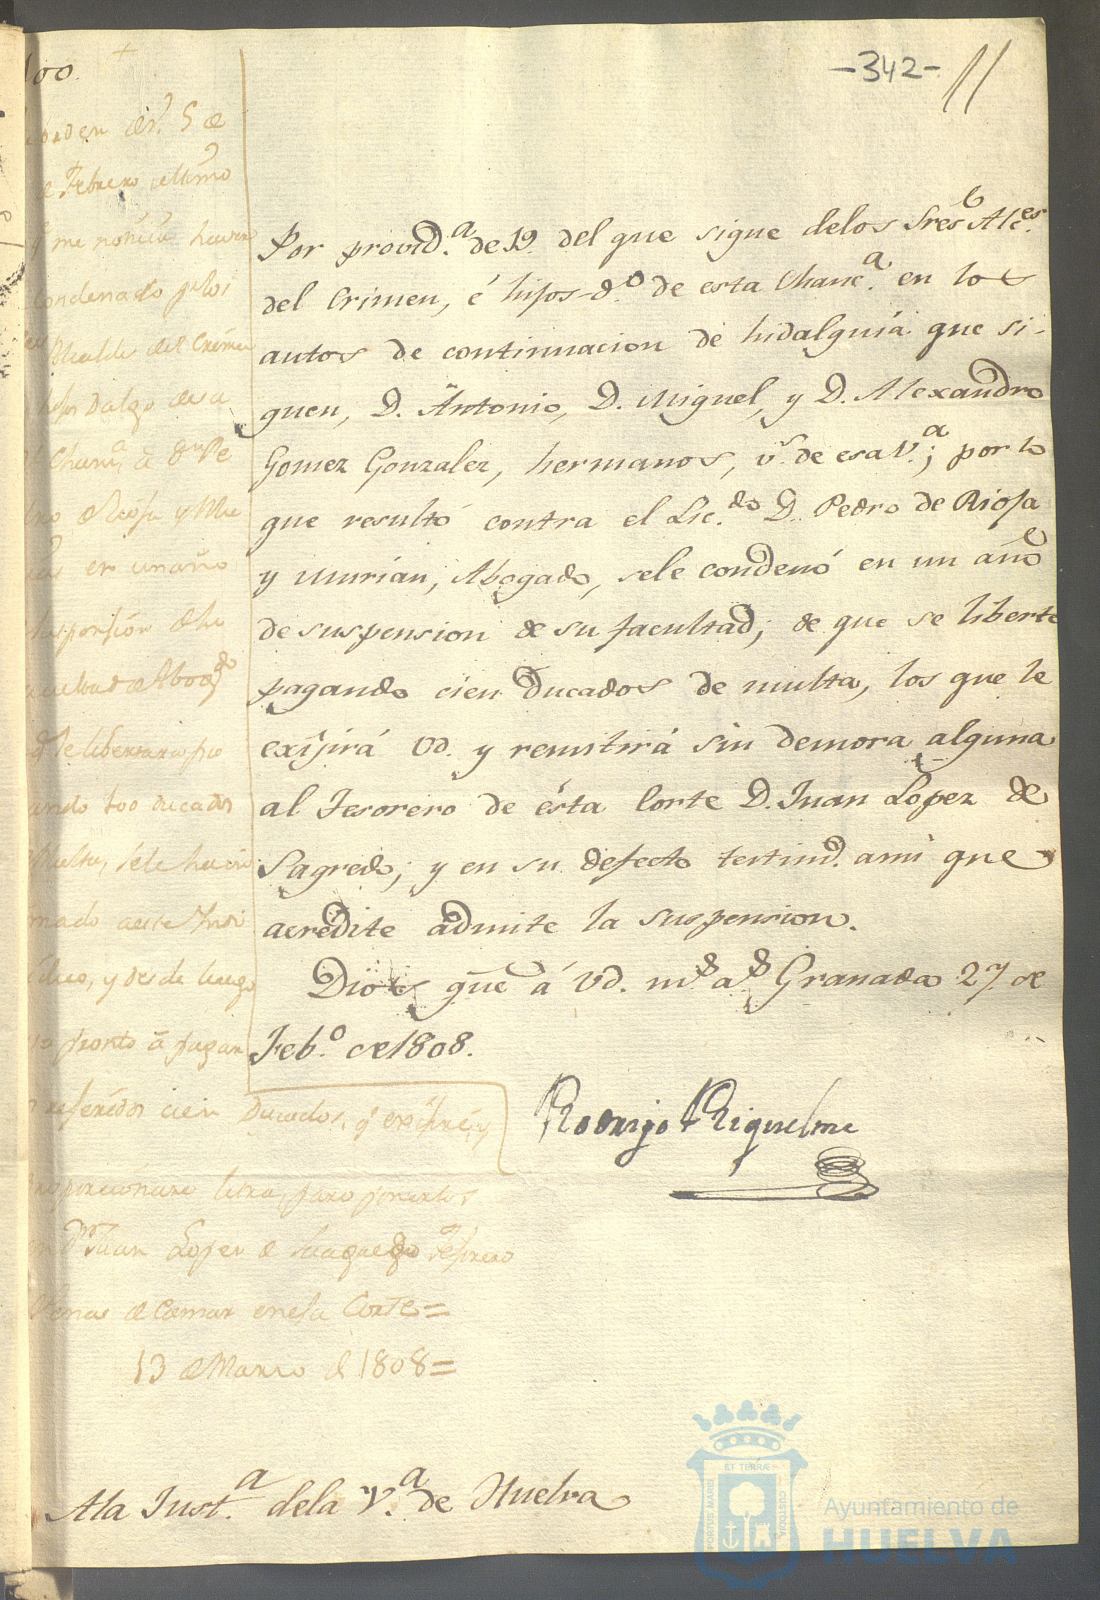 -342-
100.
Por provid.ª de 19 del que sigue delos Sres Alc.es
del Crimen, é hijos-d.º de esta Chanc.ª en los
autos de continuacion de hidalguiá que si-
guen, D. Antonio, D. Miguel, y D. Alexandro
Gomez Gonzalez, hermanos, v.s de esa V.ª; por lo
que resultó contra el Lic.do D. Pedro de Rioja
y Murian, Abogado, sele condenó en un año
de suspension de su facultad; de que se liberte
pagando cien Ducados de multa, los que le
exijirá Vd. y remitirá sin demora alguna
al Tesorero de ésta Corte D. Juan Lopez de
Sagredo; y en su defecto testimd. ami que
acredite admite la suspension.
Dios gue á Vd. ms as Granada 27 de
Feb.º de 1808.
Rodrigo Riquelme
de Febrero ultimo
q me noticia haver
condenado p los
Alcaldes del Crimen
hijos Dalgo de sa
Chanc.ª á Dn Pe
de Rioja y Mu
en un año
suspension de la
facultad de Abogdo
q se libertaria pa
gando 100 ducados
Multa, sele hacia
mado aeste Indi
viduo, y desde luego
pronto á pagar
referidos cien Ducados, q exijiré, y
proporcionare letra, para ponerlos
en Dn Juan Lopez de Tesorero
Penas de Camara en esa Corte=
13 de Marzo de 1808=
Ala Just.ª dela V.ª de Huelva
ET TERRAE
PORTUS MARIS
CUSTODIA
Ayuntamiento de
HUELVA